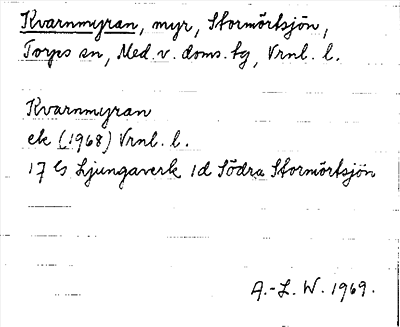 Kvarnmyran, myr, Stormörtsjön,
Torps sn, Med. v. doms. tg, Vrnl. l.
Kvarnmyran
ek (1968) Vrnl. l.
17 Es Ljungaverk 1d Södra Stormörtsjön
A.-L. W. 1969.